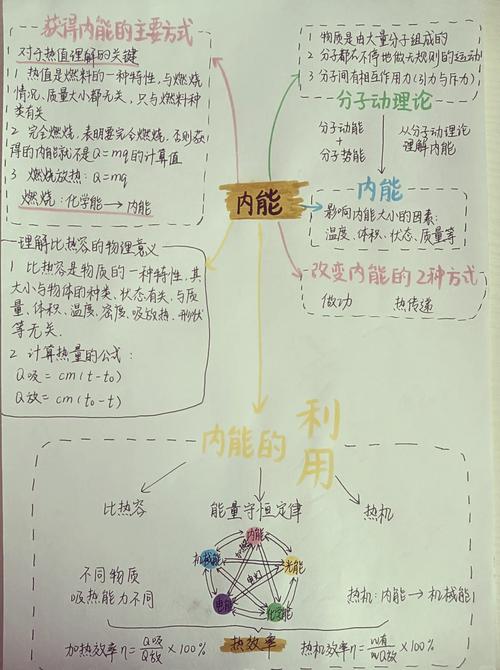 获得内能的主要方式
对于热值理解的关键
1 热值是燃料的一种特性,与燃烧
情况、质量大小都无关,只与燃料种
类有关
2 完全燃烧,表明要完全燃烧,否则获
得的内能就不是Q=mq的计算值
3 燃烧放热:Q=mq
燃烧:化学能→内能
理解比热容的物理意义
1 比热容是物质的一种特性,其
大小与物体的种类、状态有关,与质
量、体积、温度、密度、吸放热、形状
等无关.
2 计算热量的公式:
Q吸=cm(t-t₀)
Q放=cm(t₀-t)
内能
1 物质是由大量分子组成的
2 分子都在不停地做无规则的运动
3 分子间有相互作用力(引力与斥力)
分子动理论
分子动能
+
分子势能
从分子动理论
理解内能
内能
影响内能大小的因素:
温度、体积、状态、质量等
改变内能的2种方式
做功 热传递
内能的利用
比热容 能量守恒定律 热机
不同物质
吸热能力不同
内能
机械能
光能
电能
化学能
热机:内能→机械能
加热效率η=Q吸/Q放×100%
热效率
热机效率η=W有/Q放×100%